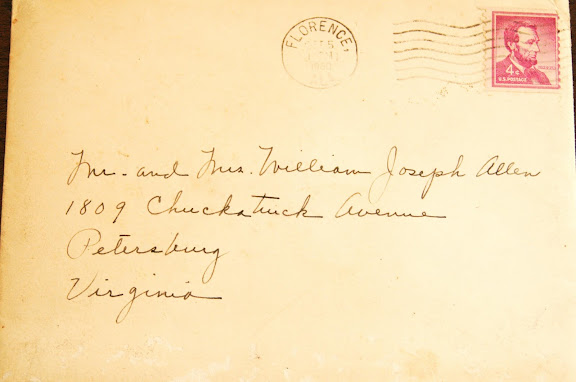 FLORENCE,
4¢
U.S. POSTAGE
Mr. and Mrs. William Joseph Allen
1809 Chuckatuck Avenue
Petersburg
Virginia